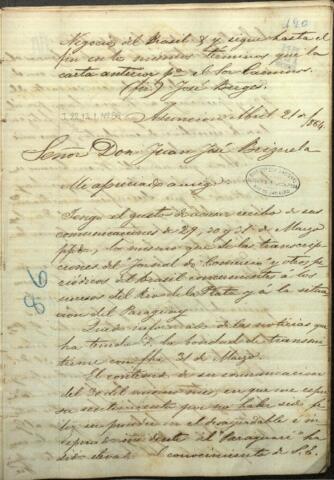 120
Negocios del Brasil & y sigue hasta el
fin en los mismos terminos que la
carta anterior pa el Sor Caminos.
(fdo) José Berges.
I-22,12,1 Nº 86
Asuncion Abril 21 de/864.
Señor Don Juan José Brizuela
Mi apreciado amigo
Tengo el gusto de acusar recibo de sus
comunicaciones de 29, 30 y 31 de Marzo
ppdo, lo mismo que de las transcrip-
ciones del Jornal do Comercio y otros pe-
riódicos del Brasil concernientes á los
sucesos del Rio de la Plata y á la situa-
cion del Paraguay
98
Quedo informado de las noticias que
ha tenido V. la bondad de transmi-
tirme con fha 31 de Marzo.
El contenido de su comunicacion
del 30 del mismo mes, en que me expre-
sa su sentimiento por no haber sido
en el desagradable é in-
esperado incidente del "Paraguarí" ha
sido elevado al conocimiento de S. E.